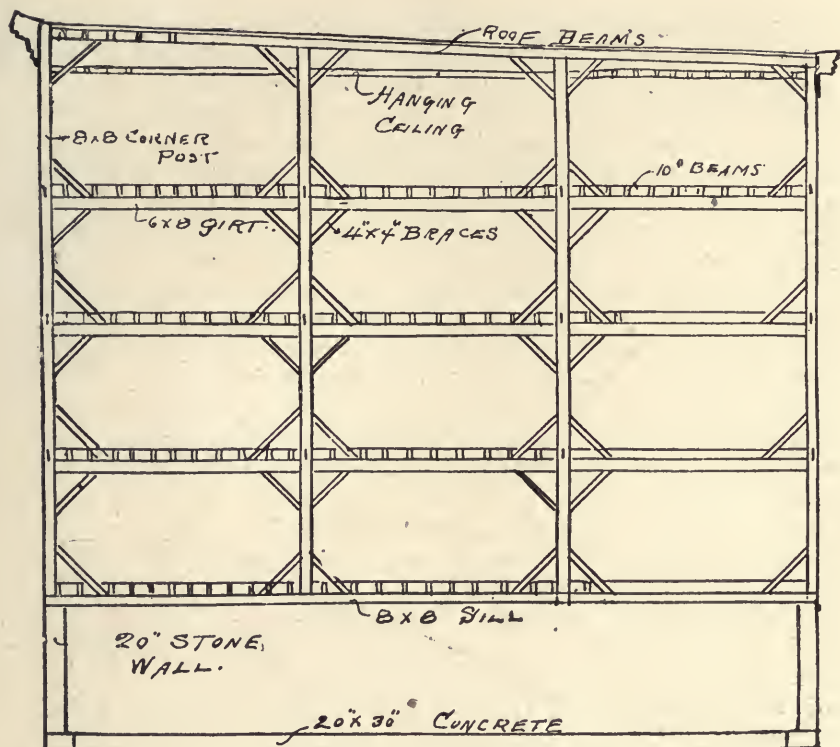 ROOF BEAMS
HANGING
CEILING
8x8 CORNER
POST
10" BEAMS
6x8 GIRT
4"x4" BRACES
8x8 SILL
20" STONE
WALL.
20"x30" CONCRETE